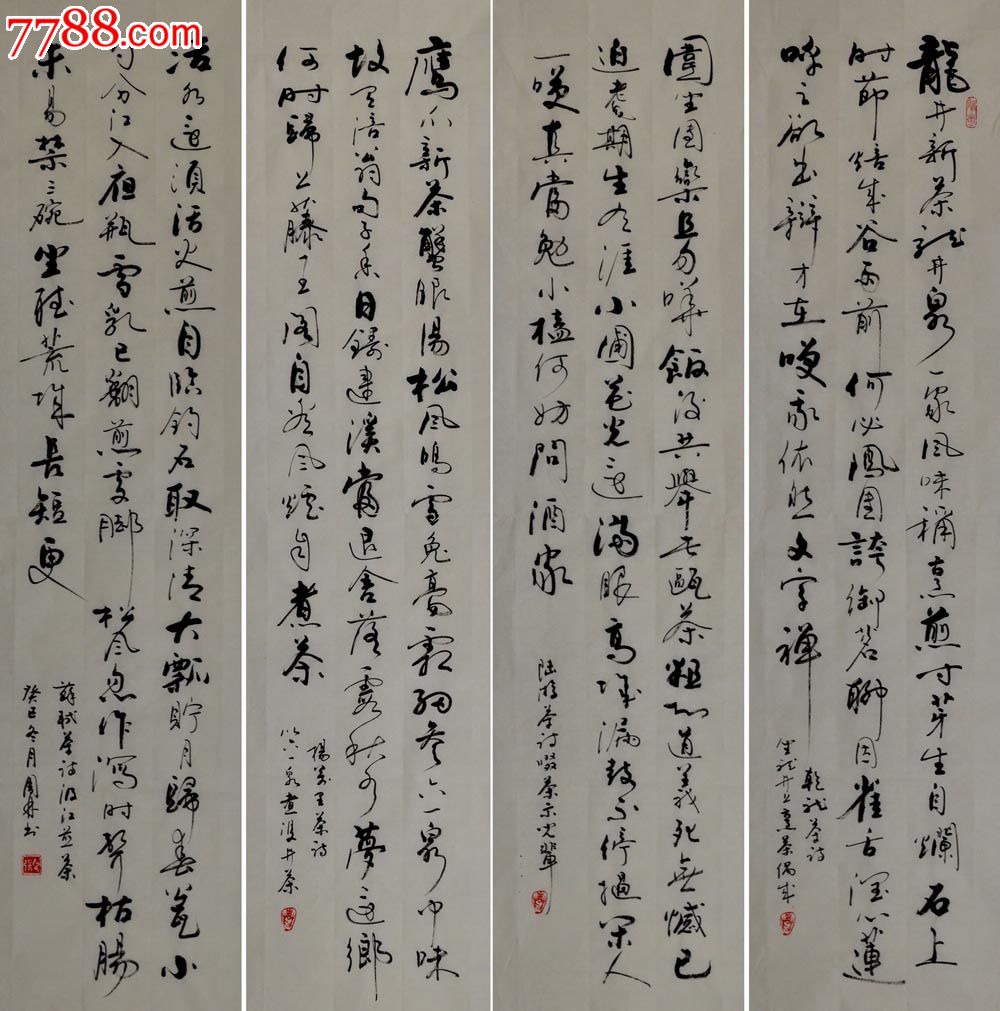 7788.com
龍井新茶龍井泉一家風味稱烹煎寸芽生自爛石上
时節焙成谷雨前何必鳳團誇御茗聊因雀舌潤心蓮
呼之欲出辯才在笑我依然文字禪
乾龍茶詩
坐龍井上烹茶偶成
圍坐團欒且勿嘩飯後共舉此甌茶粗知道義死無憾已
迫耄期生有涯小圃花光還滿眼高城漏鼓不停撾閑人
一笑真當勉小榼何妨問酒家
陆游茶詩啜茶示兒輩
鷹爪新茶蟹眼湯松風鳴雪兔毫霜細參六一泉中味
故有涪翁句子香日鑄建溪當退舍落霞秋水夢還鄉
何时歸上滕王閣自看風爐自煮茶
楊萬里茶詩
以六一泉煮雙井茶
活水還須活火煎自臨釣石取深清大瓢貯月歸春甕小
杓分江入夜瓶雪乳已翻煎處脚松風忽作瀉时聲枯腸
未易禁三碗坐聽荒城長短更
蘇軾茶詩汲江煎茶
癸巳冬月書